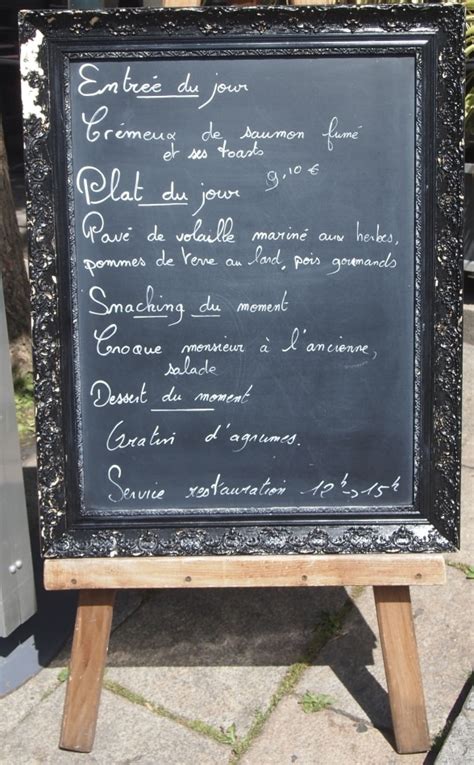 Entrée du jour
Crémeux de saumon fumé
et ses toasts
9,10 €
Plat du jour
Pavé de volaille mariné aux herbes,
pommes de terre au lard, pois gourmands
Snacking du moment
Croque monsieur à l'ancienne,
salade
Dessert du moment
Gratin d'agrumes.
Service restauration 12h -> 15h